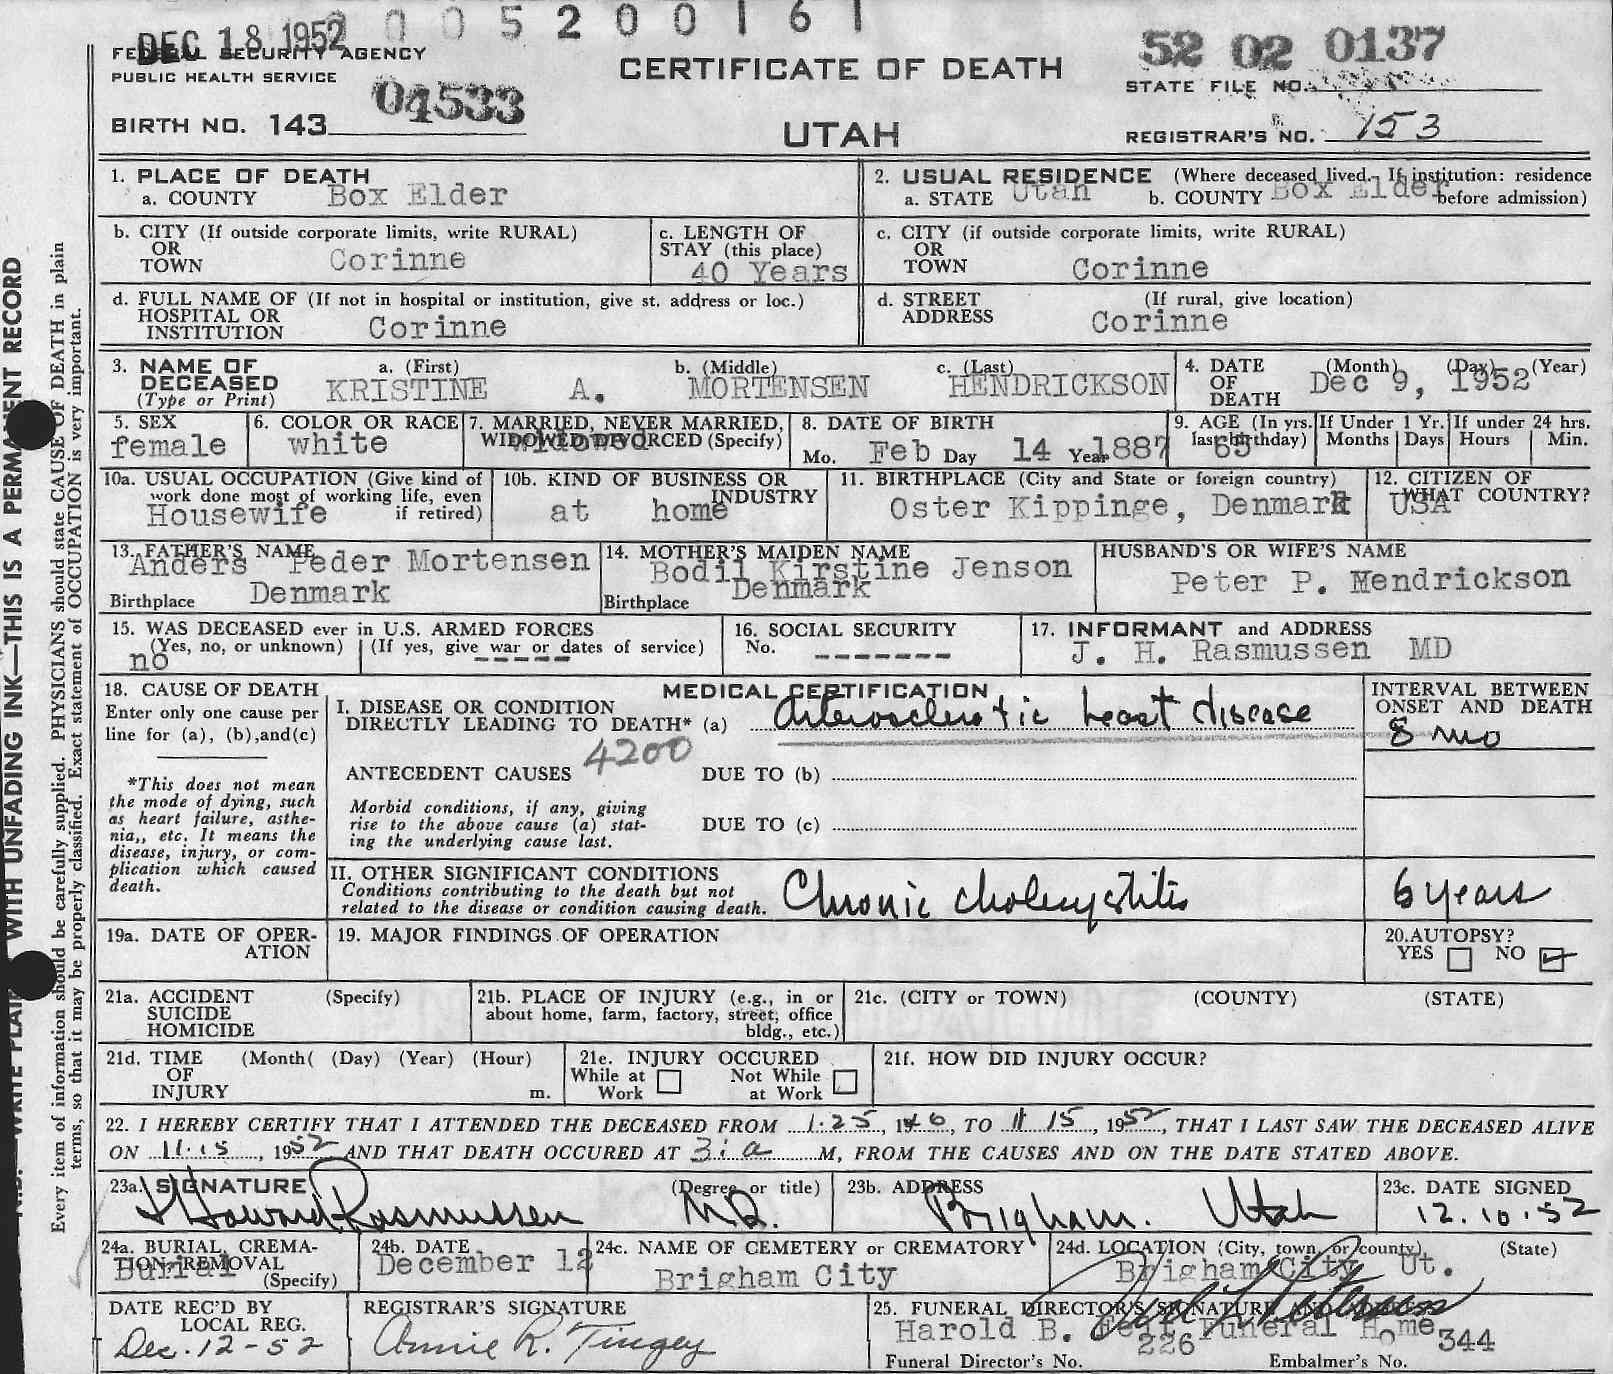 DEC 18 1952
0 0 5 2 0 0 1 6 1
FEDERAL SECURITY AGENCY
PUBLIC HEALTH SERVICE
BIRTH NO. 143 04533
CERTIFICATE OF DEATH
UTAH
52 02 0137
STATE FILE NO.
REGISTRAR'S NO. 153
N.B.—WRITE PLAINLY WITH UNFADING INK—THIS IS A PERMANENT RECORD
Every item of information should be carefully supplied. PHYSICIANS should state CAUSE OF DEATH in plain
terms, so that it may be properly classified. Exact statement of OCCUPATION is very important.
1. PLACE OF DEATH
a. COUNTY Box Elder
2. USUAL RESIDENCE (Where deceased lived. If institution: residence
a. STATE Utah b. COUNTY Box Elder before admission)
b. CITY (If outside corporate limits, write RURAL)
OR
TOWN Corinne
c. LENGTH OF
STAY (this place)
40 Years
c. CITY (if outside corporate limits, write RURAL)
OR
TOWN Corinne
d. FULL NAME OF (If not in hospital or institution, give st. address or loc.)
HOSPITAL OR
INSTITUTION Corinne
d. STREET (If rural, give location)
ADDRESS Corinne
3. NAME OF a. (First) b. (Middle) c. (Last)
DECEASED KRISTINE A. MORTENSEN HENDRICKSON
(Type or Print)
4. DATE (Month) (Day) (Year)
OF Dec 9, 1952
DEATH
5. SEX
female
6. COLOR OR RACE
white
7. MARRIED, NEVER MARRIED,
WIDOWED, DIVORCED (Specify)
widowed
8. DATE OF BIRTH
Mo. Feb Day 14 Year 1887
9. AGE (In yrs.
last birthday)
65
If Under 1 Yr.
Months Days
If under 24 hrs.
Hours Min.
10a. USUAL OCCUPATION (Give kind of
work done most of working life, even
Housewife if retired)
10b. KIND OF BUSINESS OR
INDUSTRY
at home
11. BIRTHPLACE (City and State or foreign country)
Oster Kippinge, Denmark
12. CITIZEN OF
WHAT COUNTRY?
USA
13. FATHER'S NAME
Anders Peder Mortensen
Birthplace Denmark
14. MOTHER'S MAIDEN NAME
Bodil Kirstine Jenson
Birthplace Denmark
HUSBAND'S OR WIFE'S NAME
Peter P. Hendrickson
15. WAS DECEASED ever in U.S. ARMED FORCES
(Yes, no, or unknown) (If yes, give war or dates of service)
no -----
16. SOCIAL SECURITY
No. -------
17. INFORMANT and ADDRESS
J. H. Rasmussen MD
18. CAUSE OF DEATH
Enter only one cause per
line for (a), (b),and(c)
*This does not mean
the mode of dying, such
as heart failure, asthe-
nia,, etc. It means the
disease, injury, or com-
plication which caused
death.
MEDICAL CERTIFICATION
I. DISEASE OR CONDITION
DIRECTLY LEADING TO DEATH* (a) Arteriosclerotic heart disease
4200
INTERVAL BETWEEN
ONSET AND DEATH
8 mo
ANTECEDENT CAUSES DUE TO (b)
Morbid conditions, if any, giving
rise to the above cause (a) stat-
ing the underlying cause last.
DUE TO (c)
II. OTHER SIGNIFICANT CONDITIONS
Conditions contributing to the death but not
related to the disease or condition causing death.
Chronic cholecystitis 6 years
19a. DATE OF OPER-
ATION
19. MAJOR FINDINGS OF OPERATION
20.AUTOPSY?
YES NO
21a. ACCIDENT (Specify)
SUICIDE
HOMICIDE
21b. PLACE OF INJURY (e.g., in or
about home, farm, factory, street, office
bldg., etc.)
21c. (CITY or TOWN) (COUNTY) (STATE)
21d. TIME (Month( (Day) (Year) (Hour)
OF
INJURY m.
21e. INJURY OCCURED
While at Not While
Work at Work
21f. HOW DID INJURY OCCUR?
22. I HEREBY CERTIFY THAT I ATTENDED THE DECEASED FROM 1.25, 1946, TO 11 15, 1952, THAT I LAST SAW THE DECEASED ALIVE
ON 11.15, 1952 AND THAT DEATH OCCURED AT M, FROM THE CAUSES AND ON THE DATE STATED ABOVE.
23a. SIGNATURE (Degree or title)
J Howard Rasmussen M.D.
23b. ADDRESS
Brigham. Utah
23c. DATE SIGNED
12.10.52
24a. BURIAL, CREMA-
TION, REMOVAL
(Specify)
Burial
24b. DATE
December 12
24c. NAME OF CEMETERY or CREMATORY
Brigham City
24d. LOCATION (City, town, or county) (State)
Brigham City Ut.
DATE REC'D BY
LOCAL REG.
Dec. 12-52
REGISTRAR'S SIGNATURE
Annie R. Tingey
25. FUNERAL DIRECTOR'S SIGNATURE AND ADDRESS
Harold B. Felt Funeral Home
226 344
Funeral Director's No. Embalmer's No.